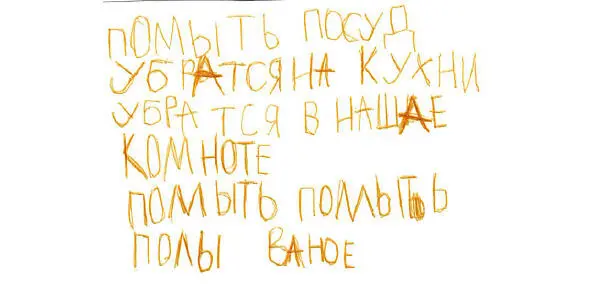 ПОМЫТЬ ПОСУД
УБРАТСЯ НА КУХНИ
УБРАТСЯ В НАШАЕ
КОМНОТЕ
ПОМЫТЬ ПОМЫТЬ
ПОЛЫ ВАНОЕ